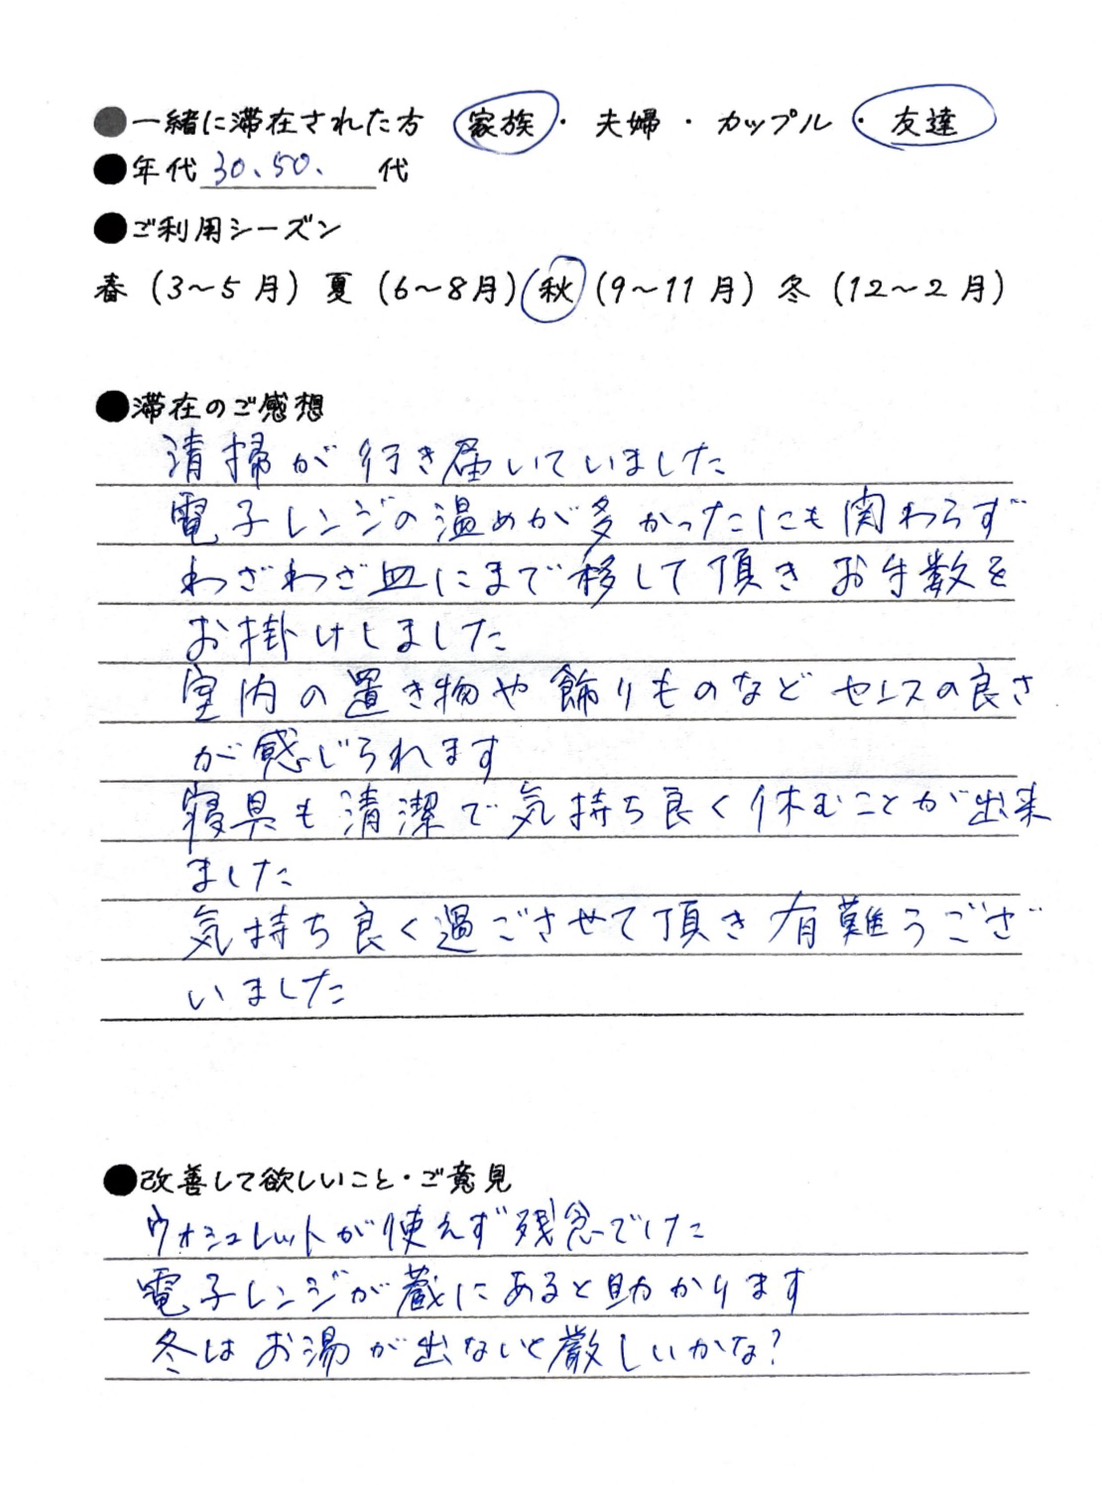 ●一緒に滞在された方 家族・夫婦・カップル・友達
●年代 30、50、代
●ご利用シーズン
春（3～5月）夏（6～8月）秋（9～11月）冬（12～2月）
●滞在のご感想
清掃が行き届いていました
電子レンジの温めが多かったにも関わらず
わざわざ皿にまで移して頂きお手数を
お掛けしました
室内の置き物や飾りものなどセンスの良さ
が感じられます
寝具も清潔で気持ち良く休むことが出来
ました
気持ち良く過ごさせて頂き有難うござ
いました
●改善して欲しいこと・ご意見
ウォシュレットが使えず残念でした
電子レンジが蔵にあると助かります
冬はお湯が出ないと厳しいかな?